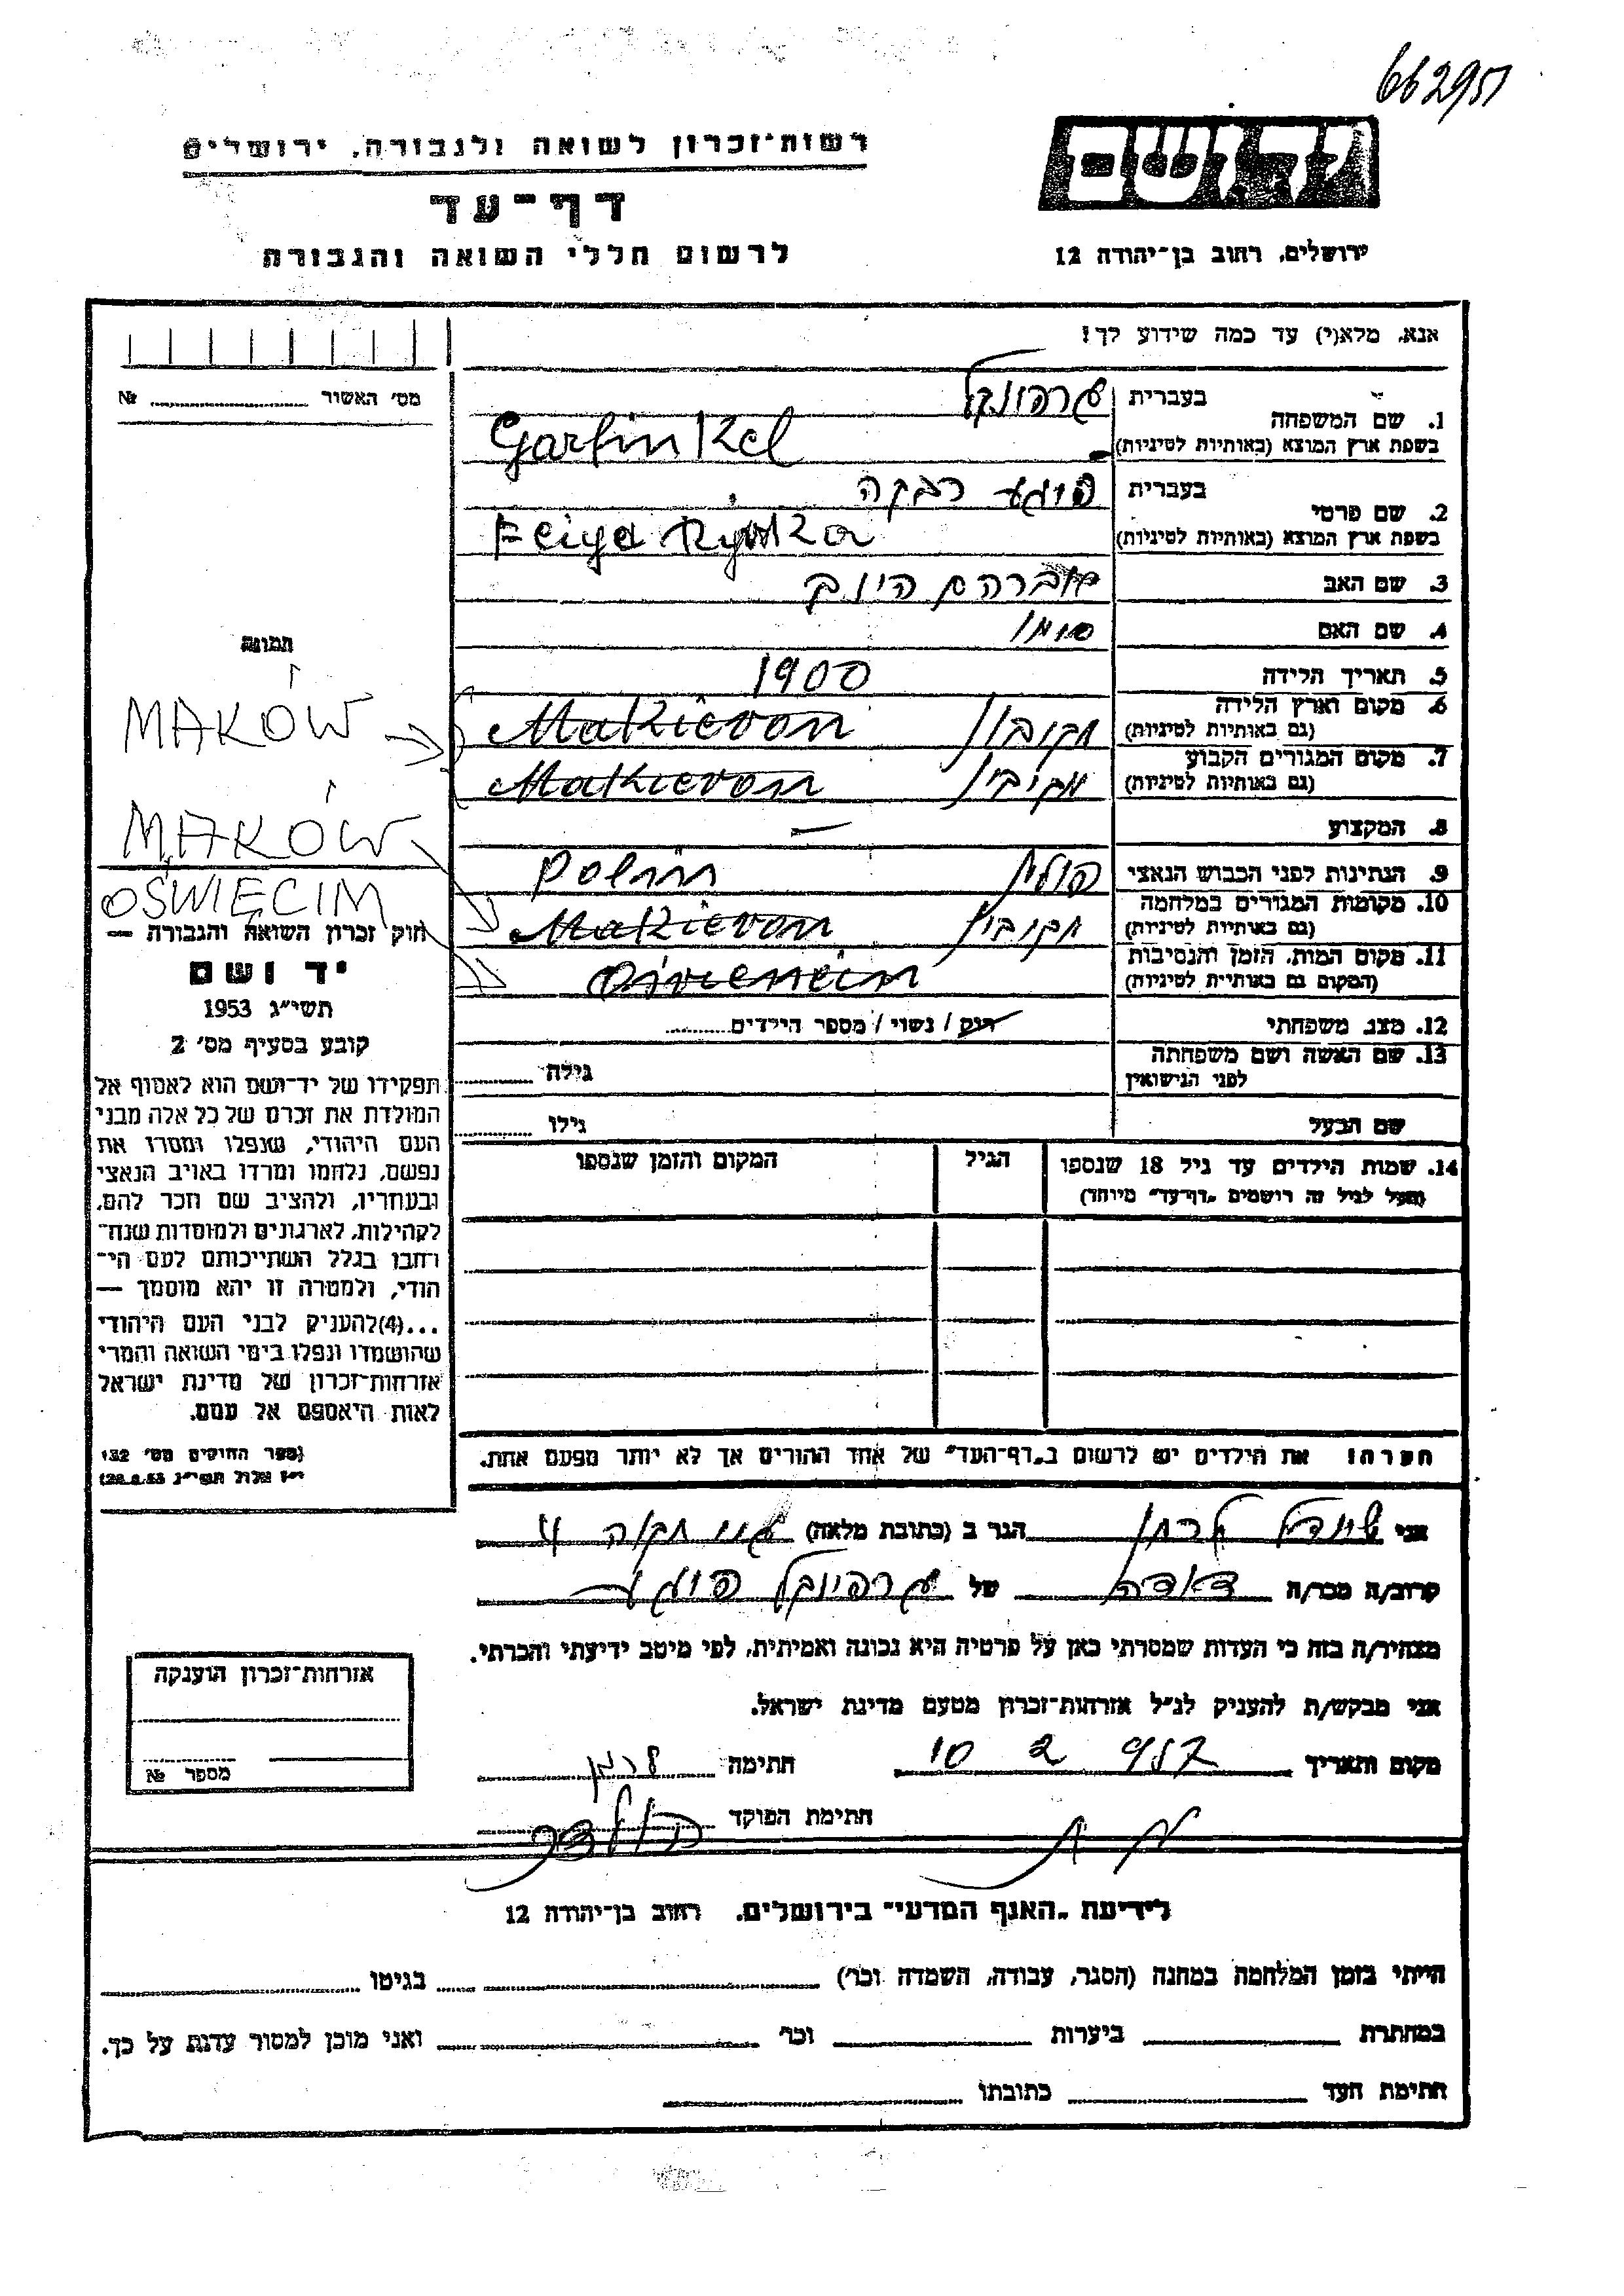 66295
רשות־זכרון לשואה ולגבורה, ירושלים
יד ושם
דף־עד
לרשום חללי השואה והגבורה
ירושלים, רחוב בן־יהודה 12
אנא, מלא(י) עד כמה שידוע לך!
מס׳ האשור № 
1. שם המשפחה בעברית גרפונקל
בשפת ארץ המוצא (באותיות לטיניות) Garfinkel
2. שם פרטי בעברית פייגע רבקה
בשפת ארץ המוצא (באותיות לטיניות) Feiga Rywka
3. שם האב אברהם
4. שם האם
5. תאריך הלידה 1900
6. מקום וארץ הלידה (גם באותיות לטיניות) Makievon
7. מקום המגורים הקבוע (גם באותיות לטיניות) Makievon
8. המקצוע —
9. הנתינות לפני הכבוש הנאצי פולין Polin
10. מקומות המגורים במלחמה (גם באותיות לטיניות) Makievon
11. מקום המות, הזמן והנסיבות (המקום גם באותיות לטיניות)
12. מצב משפחתי רוק / נשוי / מספר הילדים
13. שם האשה ושם משפחתה לפני הנישואין גילה
שם הבעל גילו
תמונה
MAKÓW
MAKÓW
OŚWIĘCIM
חוק זכרון השואה והגבורה —
יד ושם
תשי״ג 1953
קובע בסעיף מס׳ 2
תפקידו של יד־ושם הוא לאסוף אל
המולדת את זכרם של כל אלה מבני
העם היהודי, שנפלו ומסרו את
נפשם, נלחמו ומרדו באויב הנאצי
ובעוזריו, ולהציב שם וזכר להם,
לקהילות, לארגונים ולמוסדות שנח־
רבו בגלל השתייכותם לעם הי־
הודי, ולמטרה זו יהא מוסמך —
...(4) להעניק לבני העם היהודי
שהושמדו ונפלו בימי השואה והמרי
אזרחות־זכרון של מדינת ישראל
לאות היאספם אל עמם.
(ספר החוקים מס׳ 132
י״ז אלול תשי״ג 28.8.53)
14. שמות הילדים עד גיל 18 שנספו הגיל המקום והזמן שנספו
(מעל לגיל זה רושמים „דף־עד״ מיוחד)
הערה! את הילדים יש לרשום ב„דף־העד״ של אחד ההורים אך לא יותר מפעם אחת.
אני הגר ב (כתובת מלאה)
קרוב/ה מכר/ה דודה של גרפינקל פייגע
מצהיר/ה בזה כי העדות שמסרתי כאן על פרטיה היא נכונה ואמיתית, לפי מיטב ידיעתי והכרתי.
אני מבקש/ת להעניק לנ״ל אזרחות־זכרון מטעם מדינת ישראל.
מקום ותאריך 10 2 957 חתימה
חתימת הפוקד
אזרחות־זכרון הוענקה
מספר №
לידיעת „האגף המדעי״ בירושלים, רחוב בן־יהודה 12
הייתי בזמן המלחמה במחנה (הסגר, עבודה, השמדה וכו׳) בגיטו
במחתרת ביערות וכו׳ ואני מוכן למסור עדות על כך.
חתימת העד כתובתו